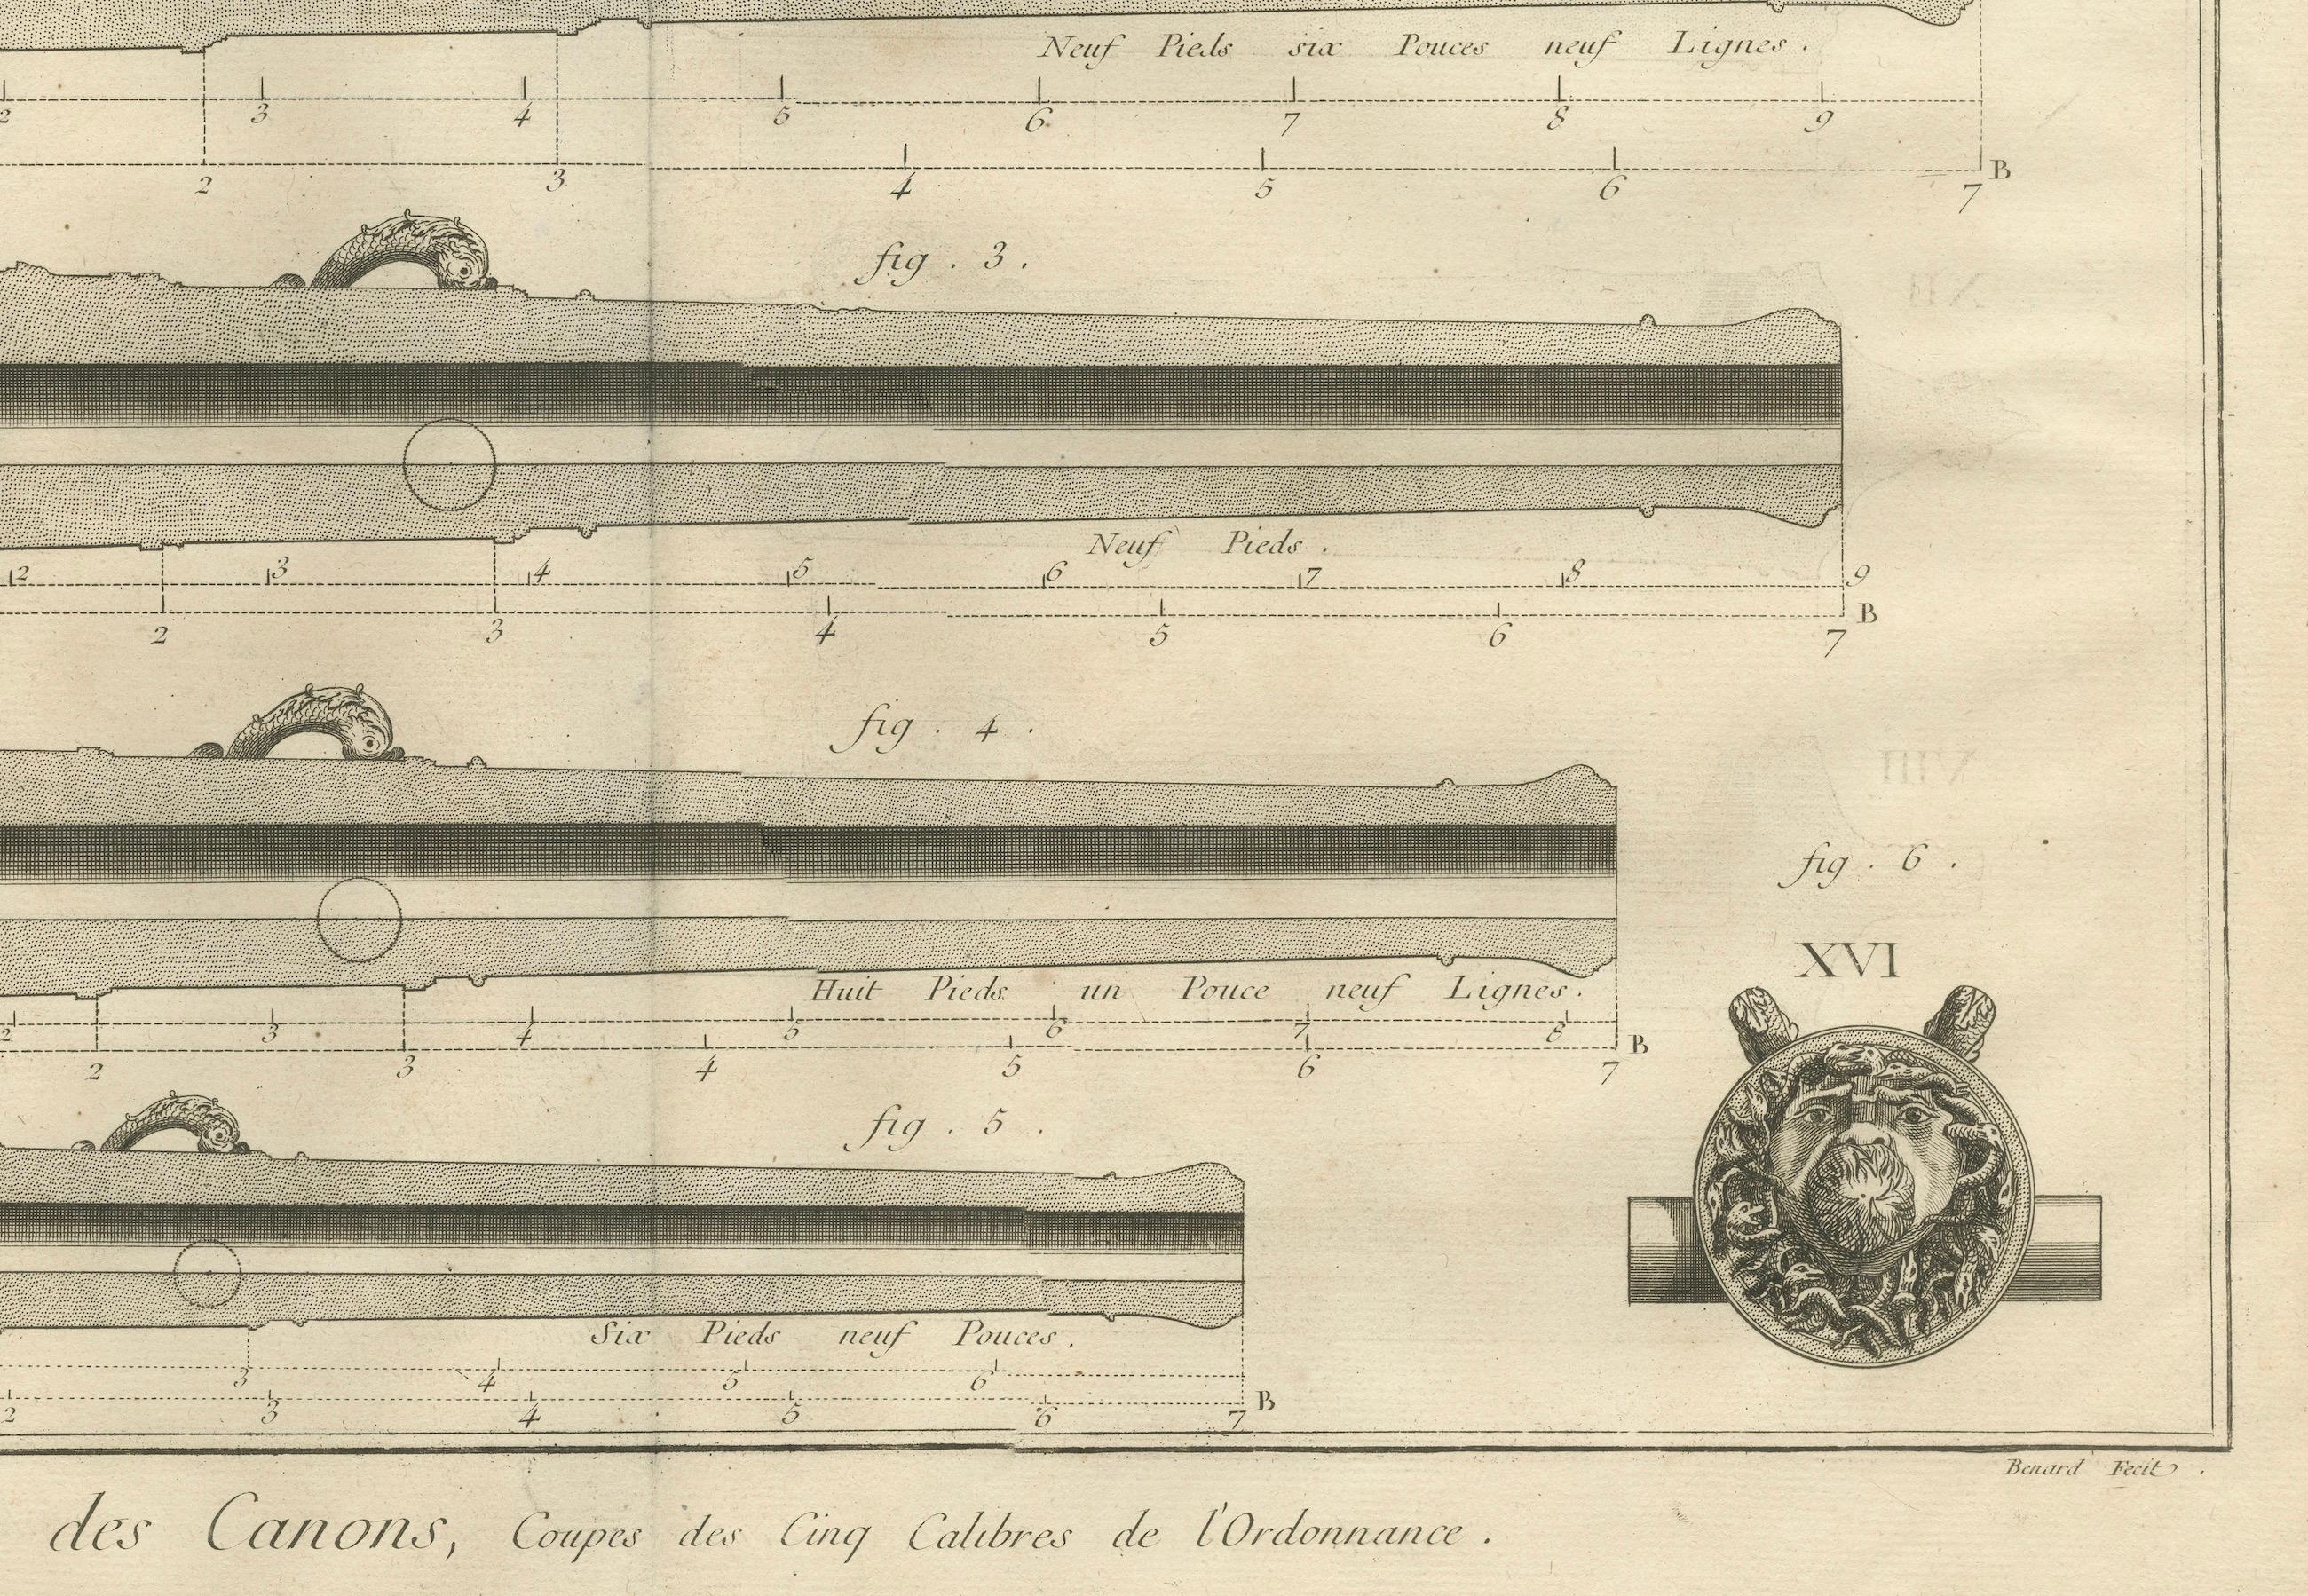 Neuf Pieds six Pouces neuf Lignes .
2 3 4 5 6 7 8 9
2 3 4 5 6 7 B
fig . 3 .
Neuf Pieds .
2 3 4 5 6 7 8 9
2 3 4 5 6 7 B
fig . 4 .
Huit Pieds un Pouce neuf Lignes .
2 3 4 5 6 7 8
2 3 4 5 6 7 B
fig . 5 .
Six Pieds neuf Pouces .
3 4 5 6
2 3 4 5 6 7 B
fig . 6 .
XVI
Benard Fecit .
des Canons, Coupes des Cinq Calibres de l'Ordonnance .